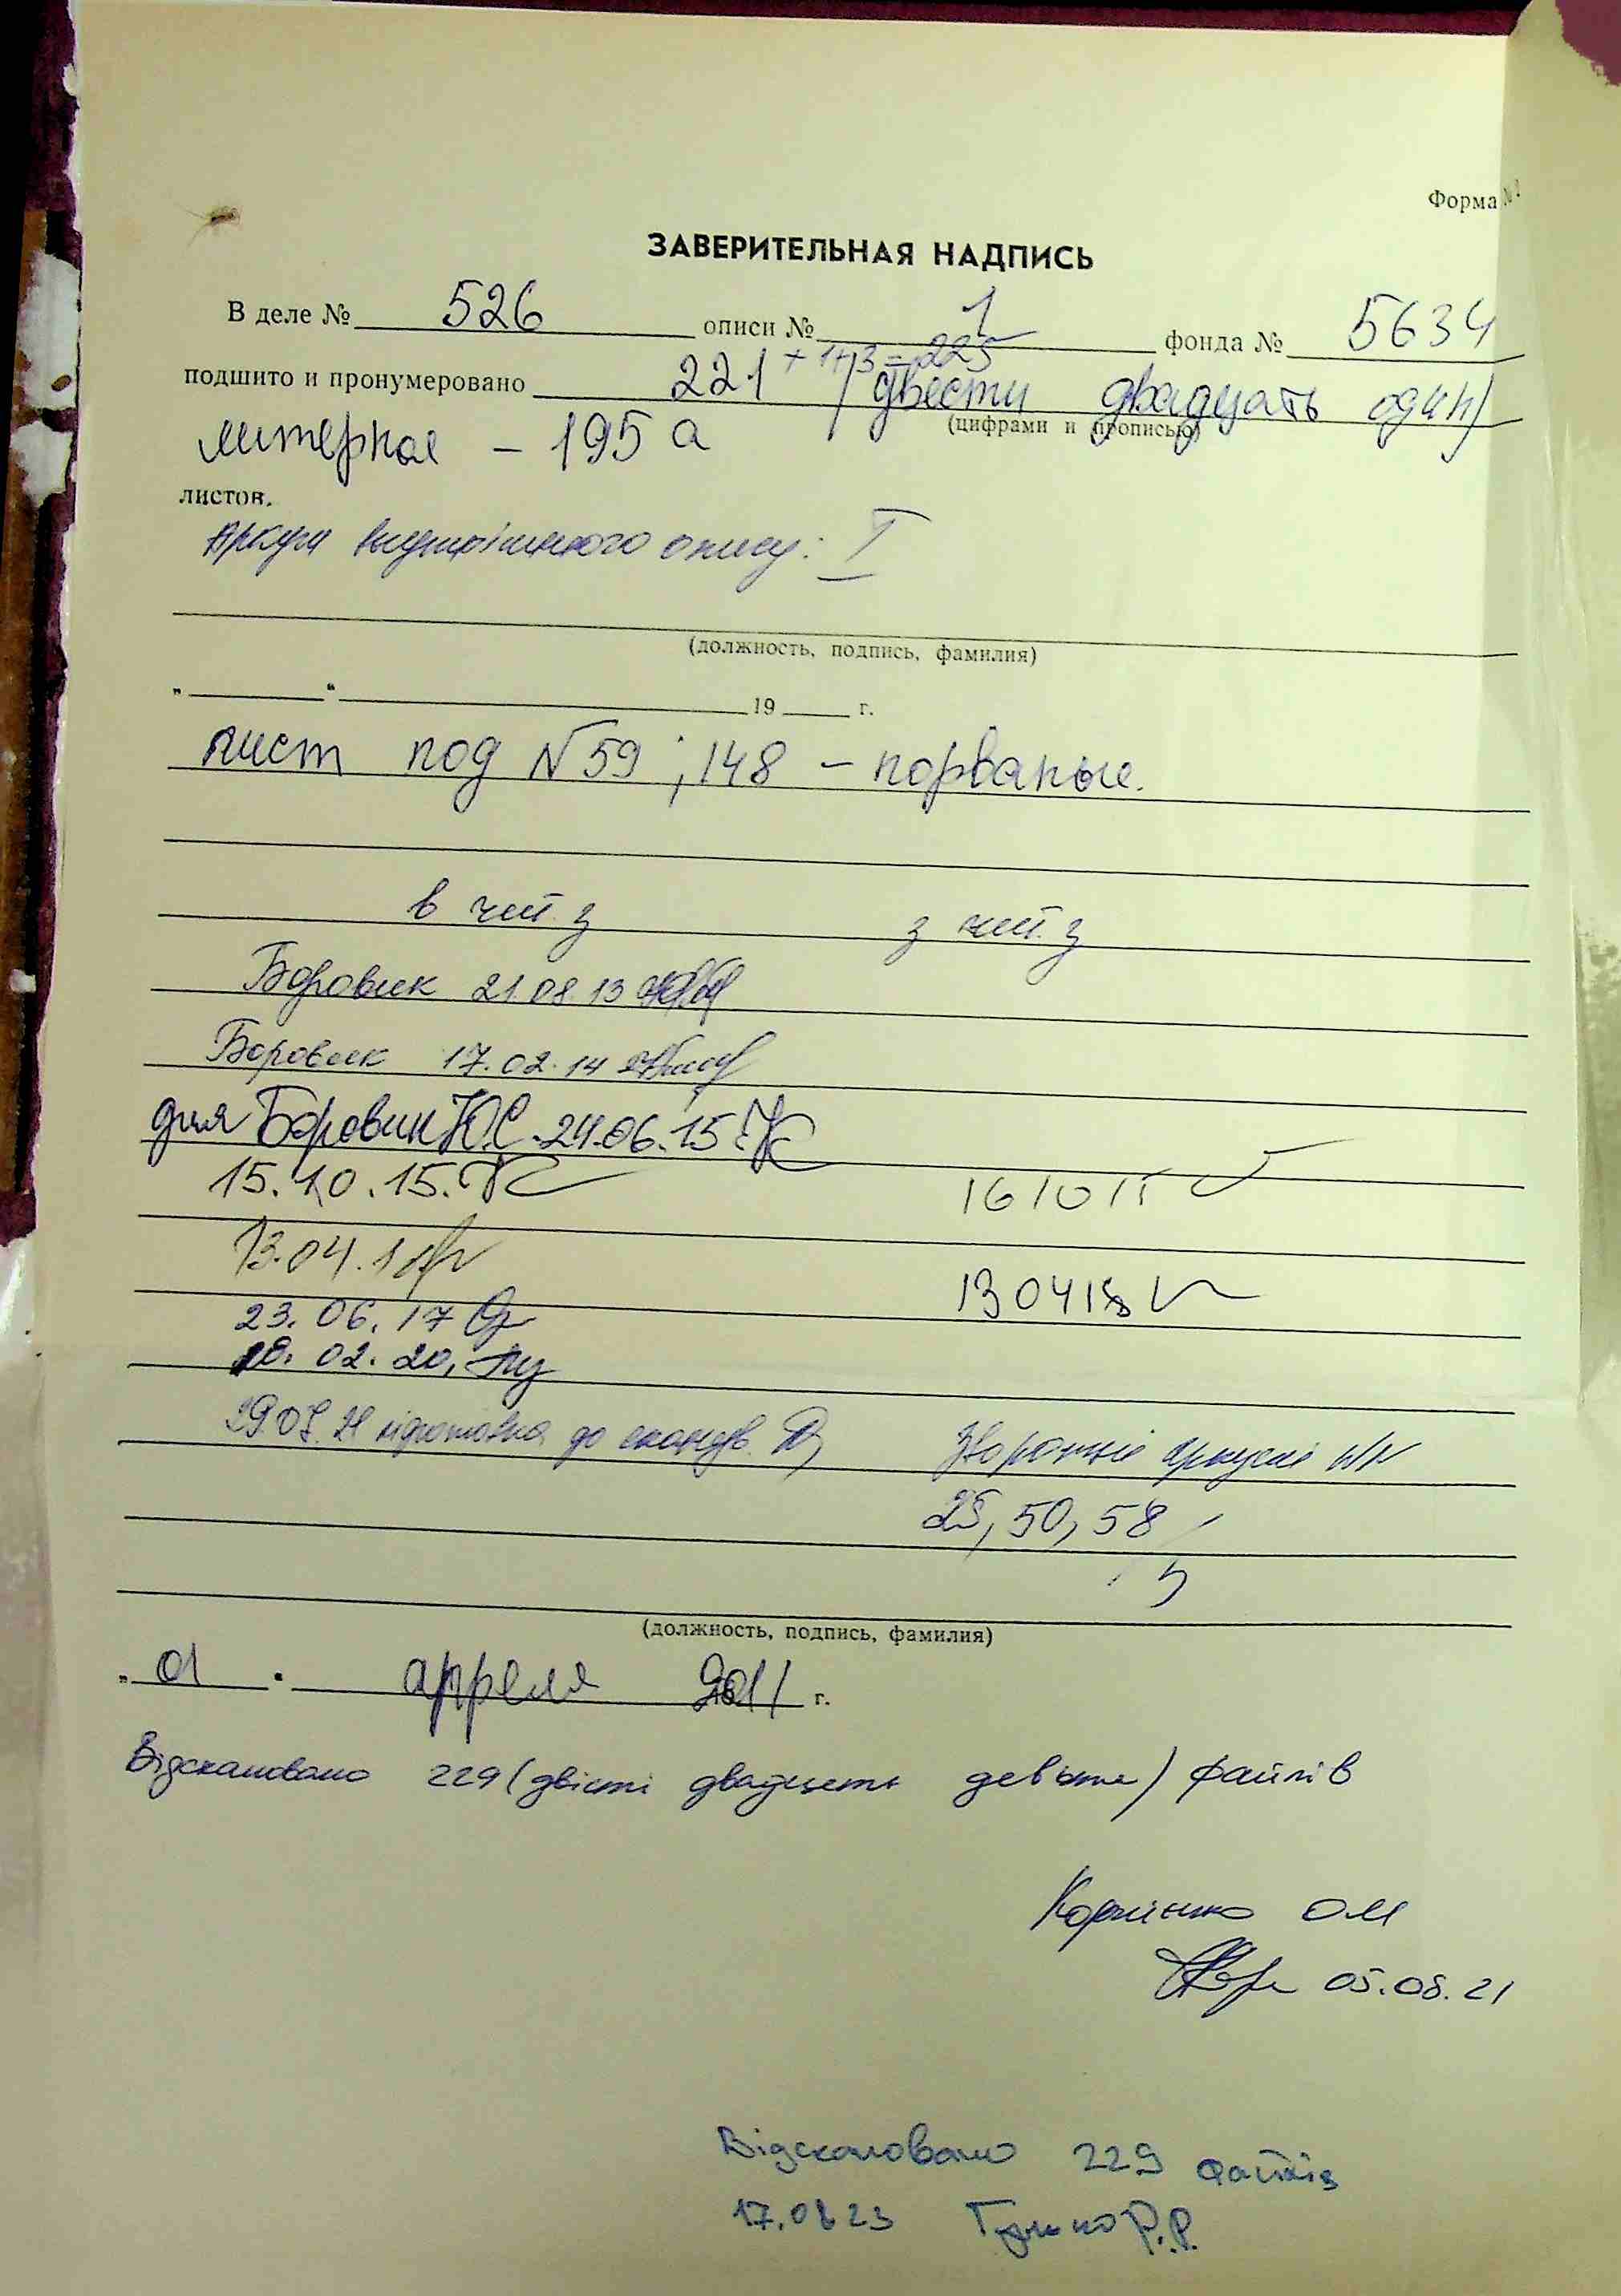 Форма №
ЗАВЕРИТЕЛЬНАЯ НАДПИСЬ
В деле № 526 описи № 1 фонда № 5634
+1+3=225
подшито и пронумеровано 221 (двести двадцать один)
(цифрами и прописью)
литерное - 195 а
листов.
Аркуш внутрішнього опису: I
(должность, подпись, фамилия)
„ “ 19 г.
лист под N 59; 148 - порваные.
в чит. з з чит. з
Боровик 21.08.13
Боровик 17.02.14
для Боровик Ю.С. 24.06.15
15.10.15. 16 10 15
13.04.1
13 04 18
23.06.17
18.02.20,
29.07.21 підготовка до сканув. Зворотні аркуші NN
25, 50, 58
(должность, подпись, фамилия)
„ 01 " апреля 2011 г.
Відскановано 229 (двісті двадцять девять) файлів
Корнієнко О М
05.08.21
Відскановано 229 файлів
17.08 23 Р.Р.